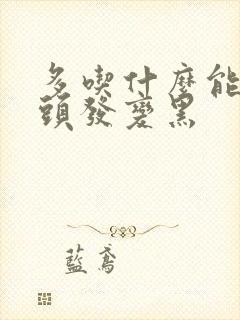 多喫什麽能
頭發變黑
藍鳶